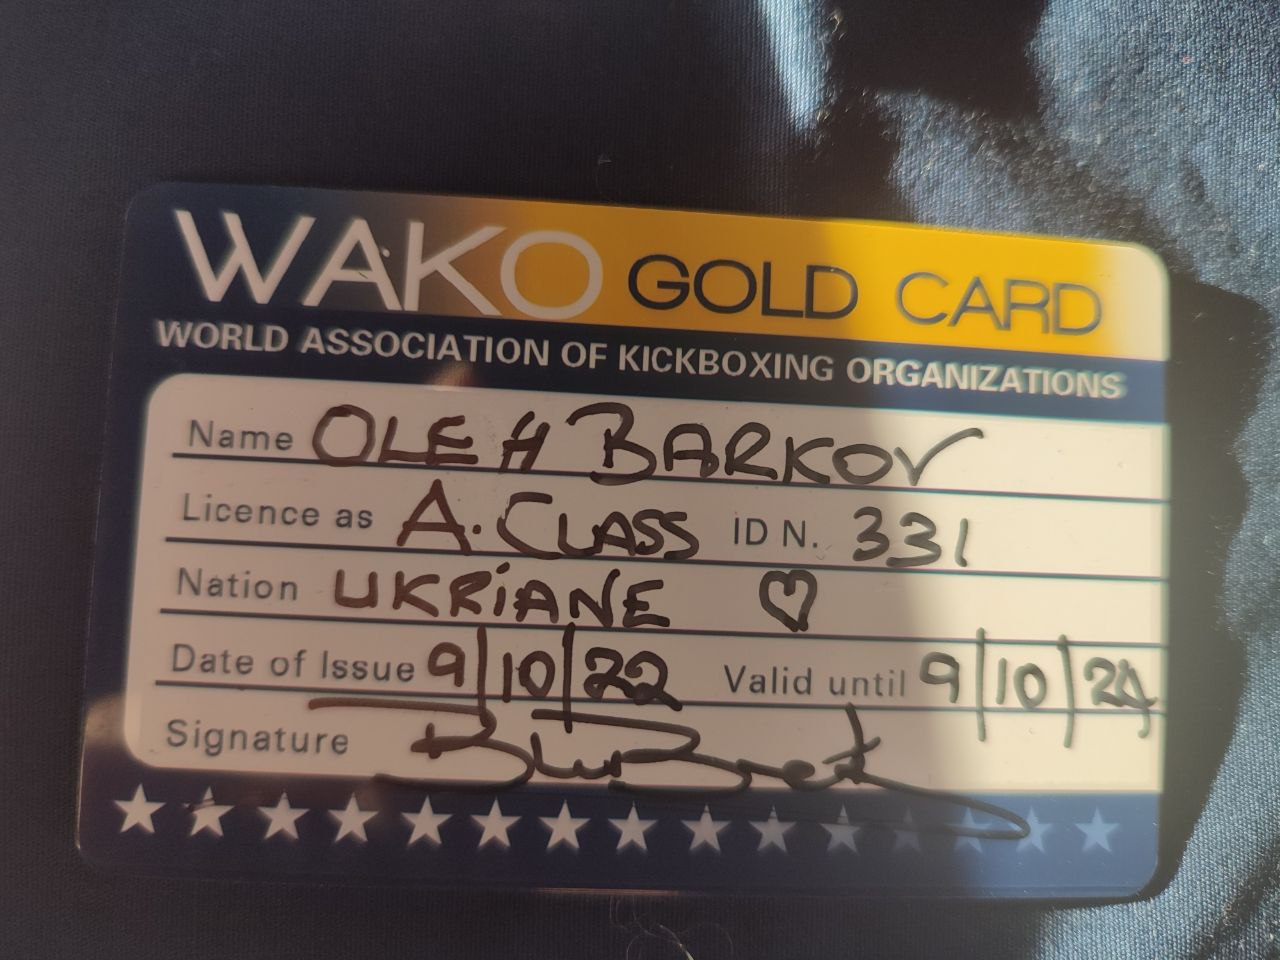 WAKO GOLD CARD
WORLD ASSOCIATION OF KICKBOXING ORGANIZATIONS
Name OLEH BARKOV
Licence as A. CLASS ID N. 331
Nation UKRIANE ♡
Date of Issue 9/10/22 Valid until 9/10/24
Signature